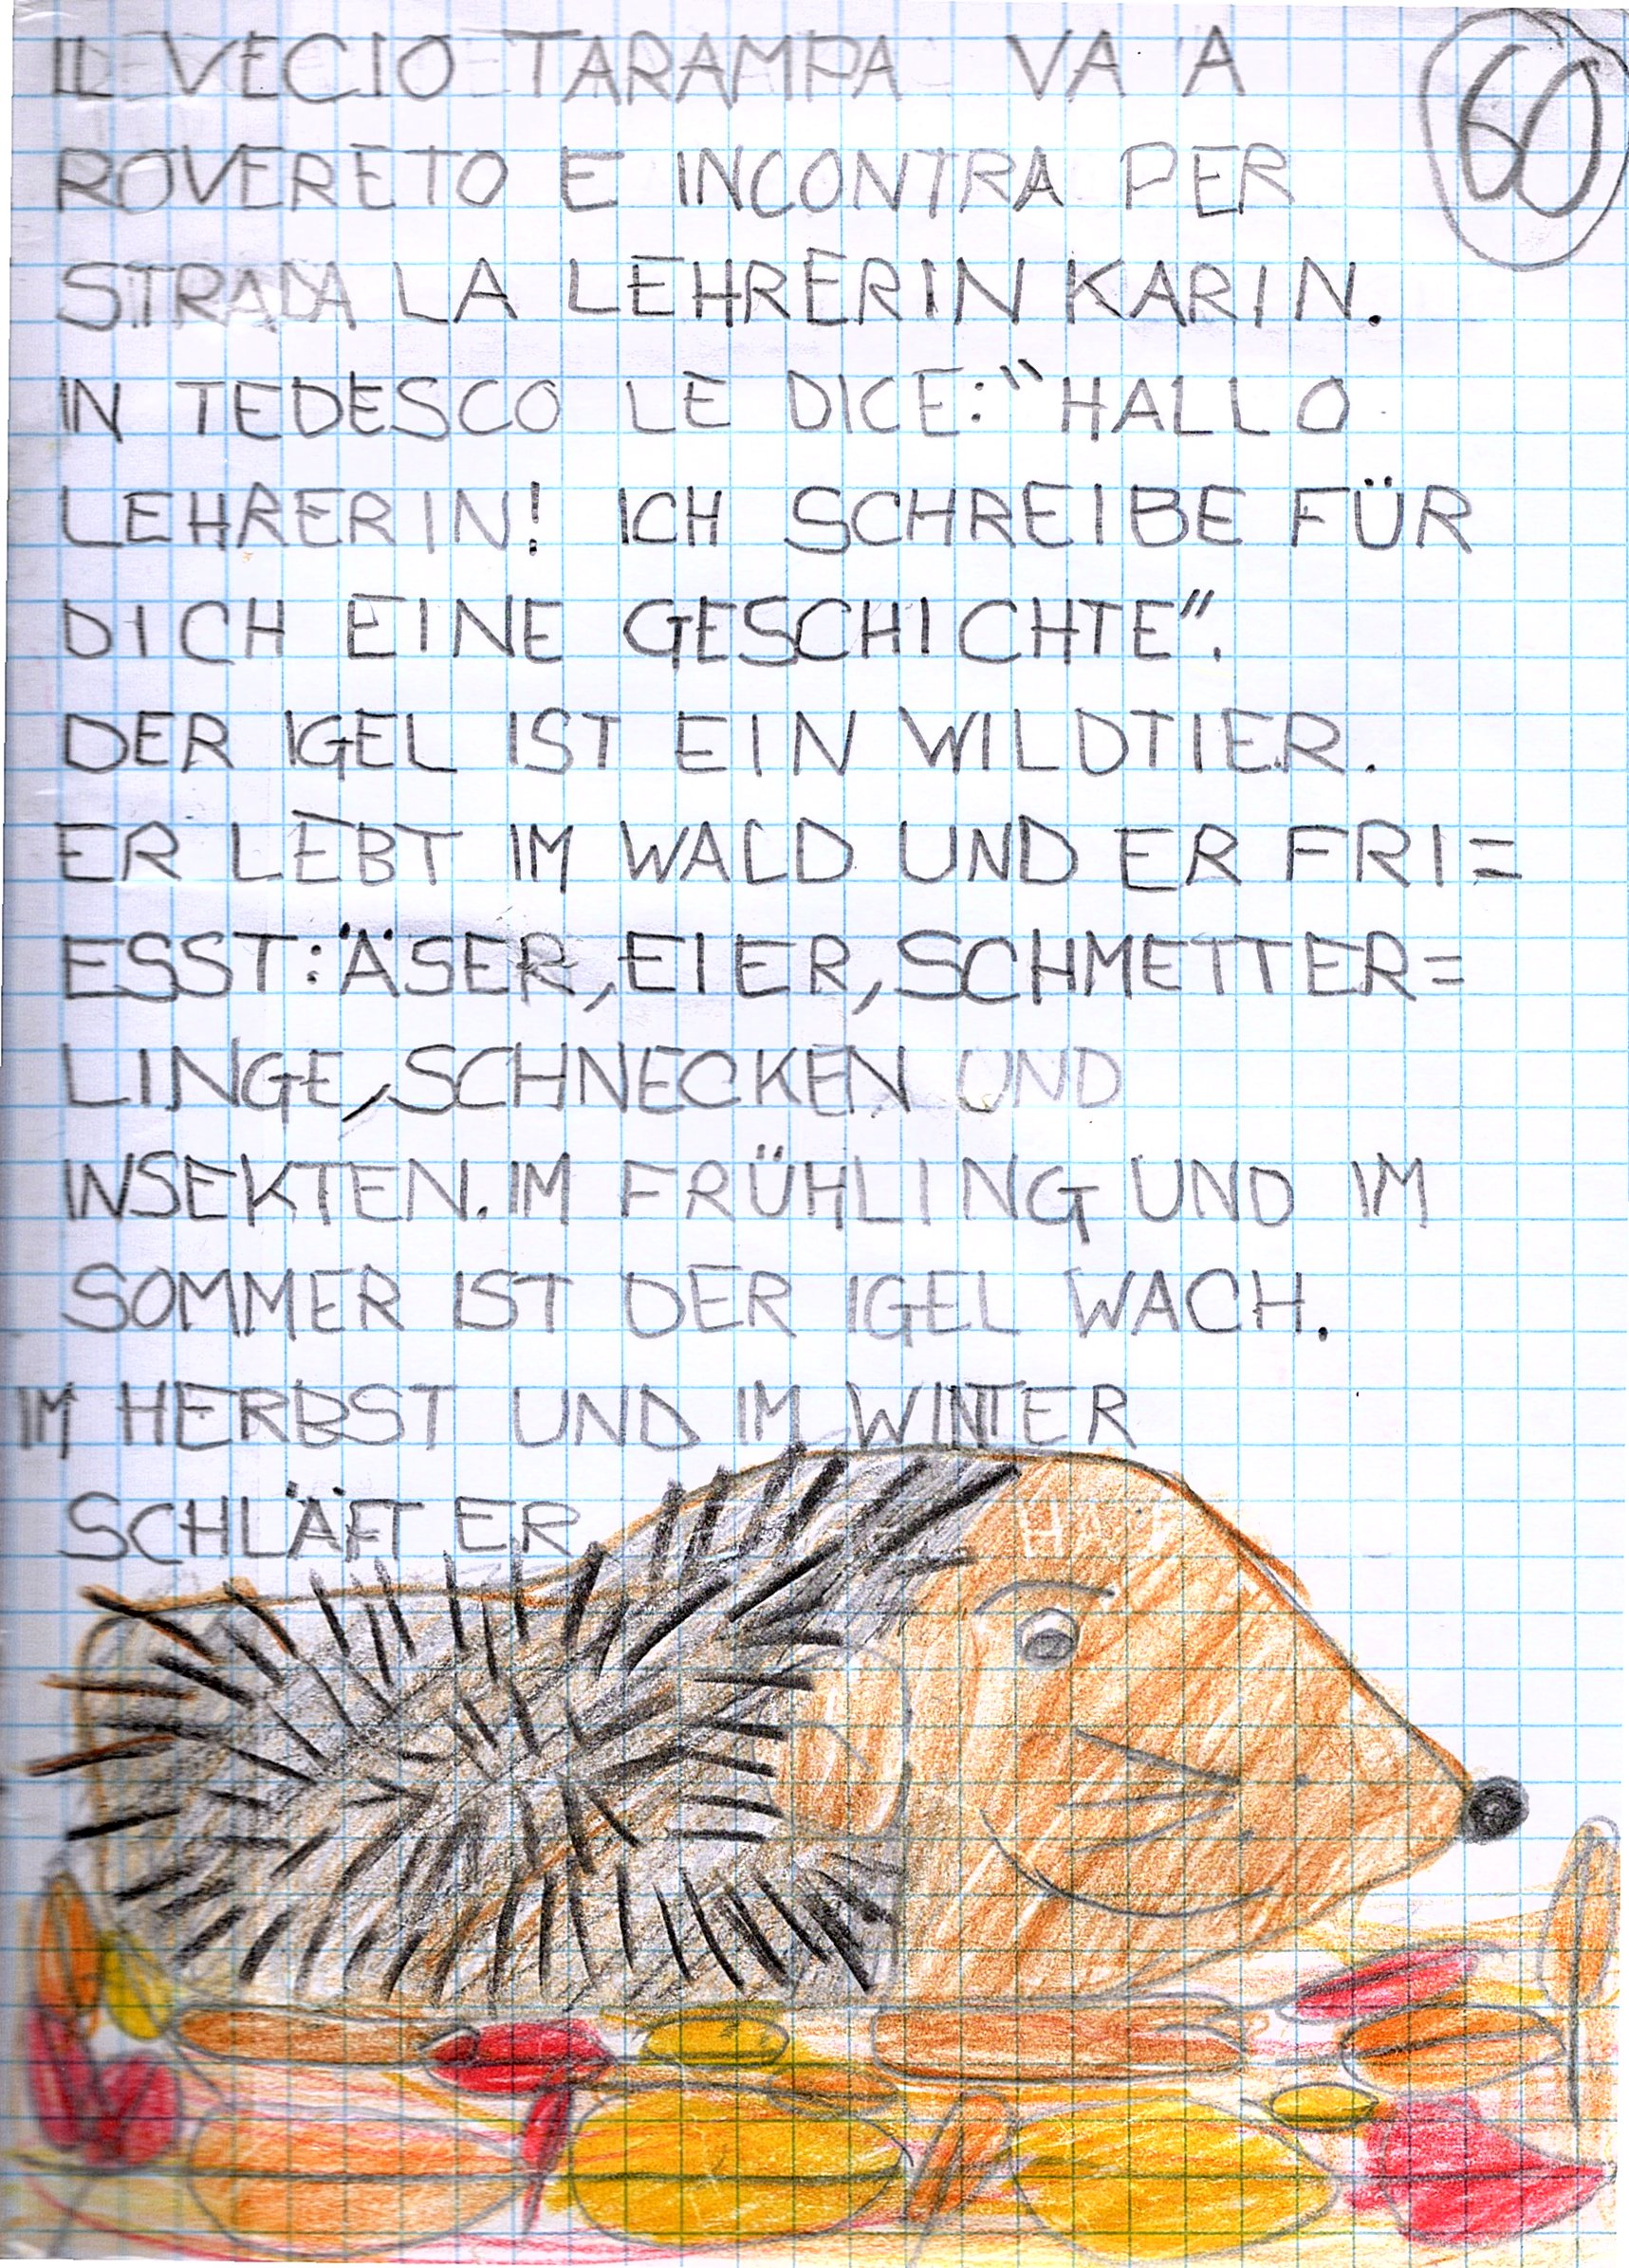 IL VECIO TARAMPA VA A
60
ROVERETO E INCONTRA PER
STRADA LA LEHRERIN KARIN.
IN TEDESCO LE DICE: "HALLO
LEHRERIN! ICH SCHREIBE FÜR
DICH EINE GESCHICHTE".
DER IGEL IST EIN WILDTIER.
ER LEBT IM WALD UND ER FRI=
ESST: ÄSER, EIER, SCHMETTER=
LINGE, SCHNECKEN UND
INSEKTEN. IM FRÜHLING UND IM
SOMMER IST DER IGEL WACH.
IM HERBST UND IM WINTER
SCHLÄFT ER